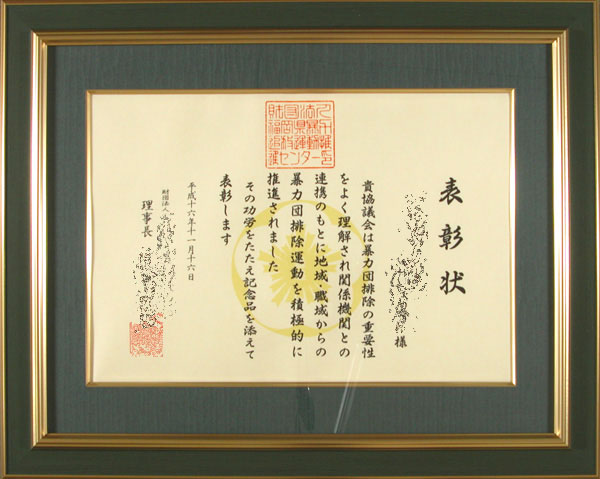 表彰状
様
貴協議会は暴力団排除の重要性
をよく理解され関係機関との
連携のもとに地域、職域からの
暴力団排除運動を積極的に
推進されました
その功労をたたえ記念品を添えて
表彰します
平成十六年十一月十六日
財団法人
理事長